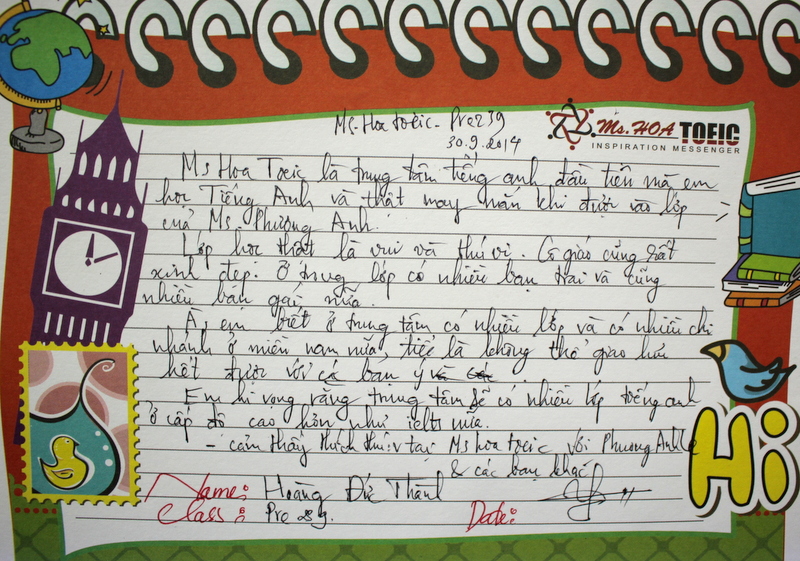 Ms-Hoa toeic - Pre 239
30.9.2014
Ms. HOA TOEIC
INSPIRATION MESSENGER
Ms Hoa Toeic là trung tâm tiếng anh đầu tiên mà em
học Tiếng Anh và thật may mắn khi được vào lớp
của Ms. Phương Anh.
Lớp học thật là vui và thú vị. Cô giáo cũng rất
xinh đẹp. Ở trung lớp có nhiều bạn trai và cũng
nhiều bạn gái nữa.
À, em biết ở trung tâm có nhiều lớp và có nhiều chi
nhánh ở miền nam nữa, tiếc là không thể giao lưu
hết được với các bạn ý
Em hi vọng rằng trung tâm sẽ có nhiều lớp tiếng anh
ở cấp độ cao hơn như ielts nữa.
- cảm thấy thích thú tại Ms hoa toeic với Phương Anh
& các bạn khác
Name: Hoàng Đức Thành
Class: Pre
Date:
Hi